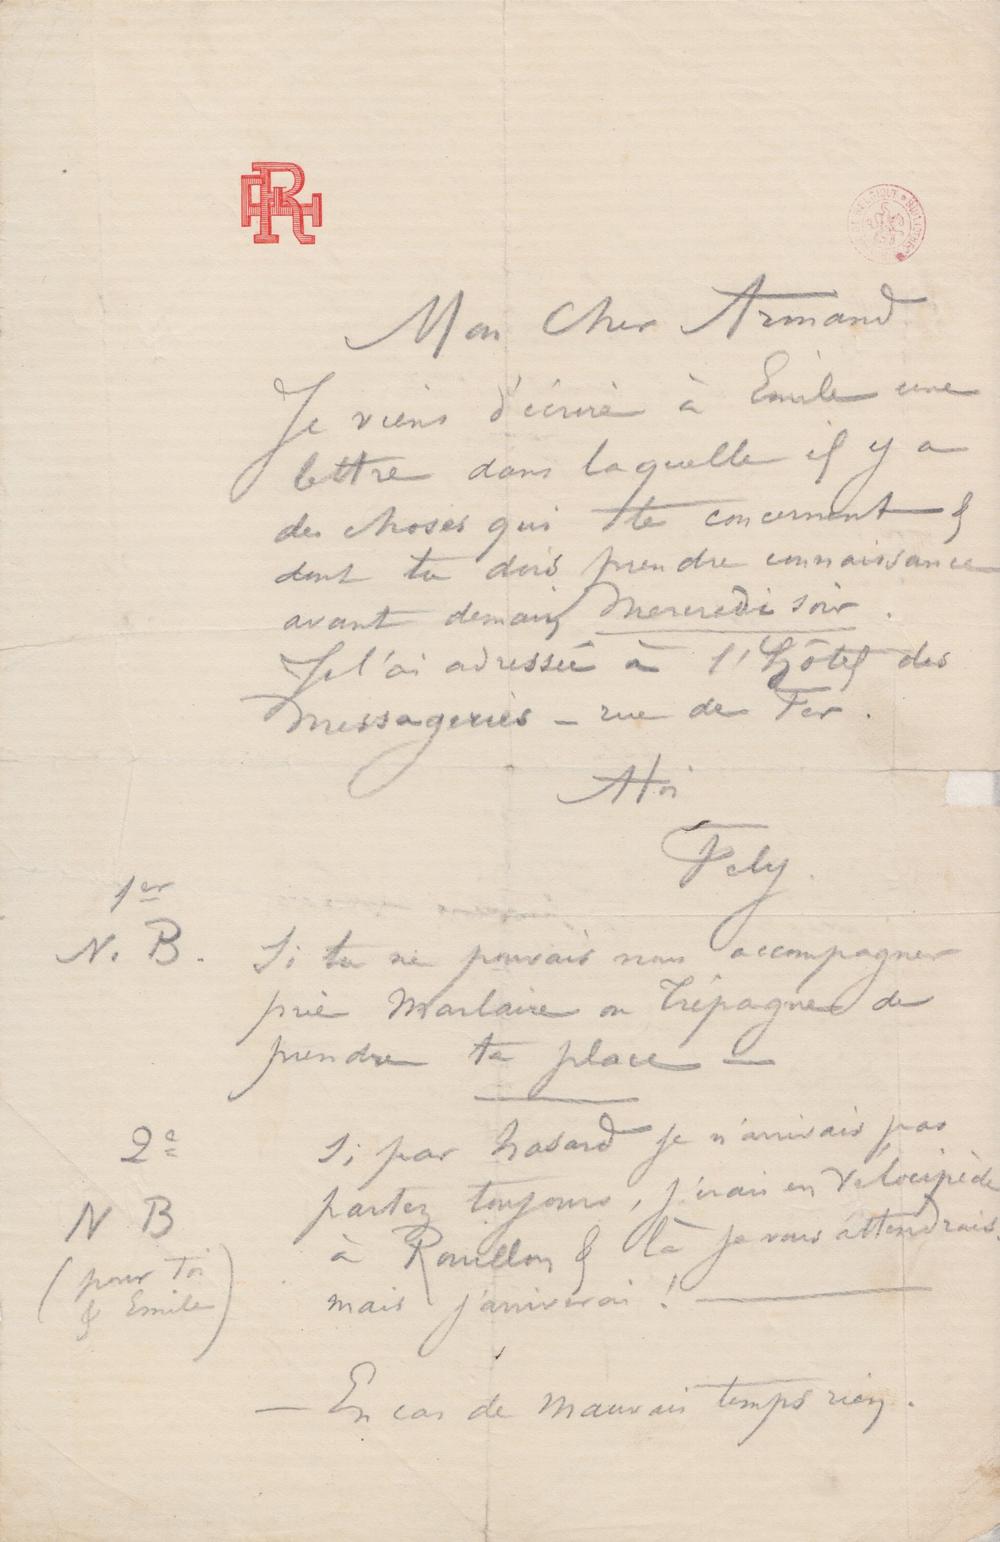 RH
Mon Cher Armand
Je viens d'écrire à Emile une
lettre dans laquelle il y a
des choses qui te concernent &
dont tu dois prendre connaissance
avant demain Mercredi soir.
Je l'ai adressée à l'hôtel des
Messageries – rue de Fer.
A toi
Fely.
1er
N. B. Si tu ne pouvais nous accompagner
prie Marlaire ou Trépagne de
prendre ta place —
2e Si par hasard je n'arrivais pas
partez toujours, j'irais en Vélocipède
N B
à Rouillon & là je vous attendrais.
(pour toi
& Emile)
mais j'arriverai !
— En cas de mauvais temps rien.